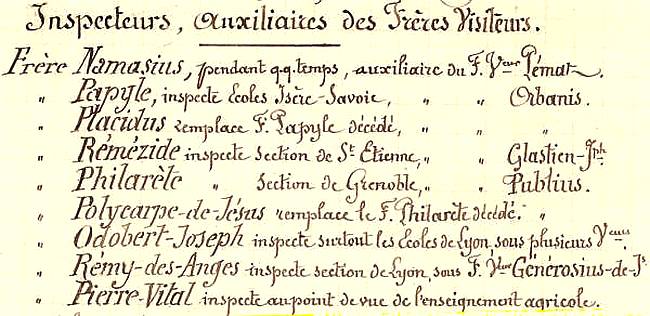 Inspecteurs, Auxiliaires des Frères Visiteurs.
Frère Namasius, pendant q.q. temps, auxiliaire du F. Vteur Pémat.
" Papyle, inspecte Ecoles Isère-Savoie, " " Orbanis.
" Placidus remplace F. Papyle décédé, " " "
" Rémézide inspecte section de St Etienne, " " Glastien-Jph
" Philarète " section de Grenoble, " " Publius.
" Polycarpe-de-Jésus remplace le F. Philarète décédé. "
" Odobert-Joseph inspecte surtout les Ecoles de Lyon, sous plusieurs Vteurs.
" Rémy-des-Anges inspecte section de Lyon, sous F. Vteur Générosius-de-Js
" Pierre-Vital inspecte au point de vue de l'enseignement agricole.